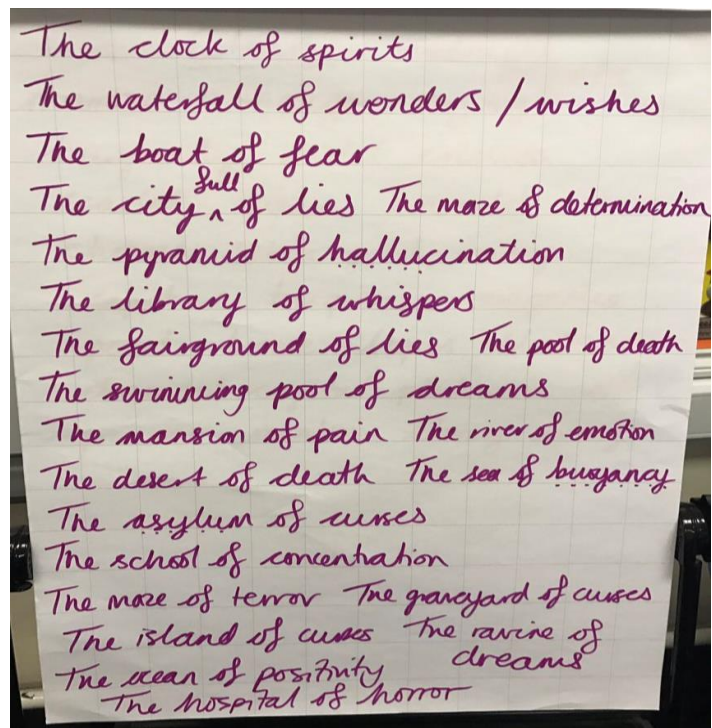 The clock of spirits
The waterfall of wonders / wishes
The boat of fear
The city full of lies The maze of determination
The pyramid of hallucination
The library of whispers
The fairground of lies The pool of death
The swimming pool of dreams
The mansion of pain The river of emotion
The desert of death The sea of buoyancy
The asylum of curses
The school of concentration
The maze of terror The graveyard of curses
The island of curses The ravine of dreams
The ocean of positivity
The hospital of horror